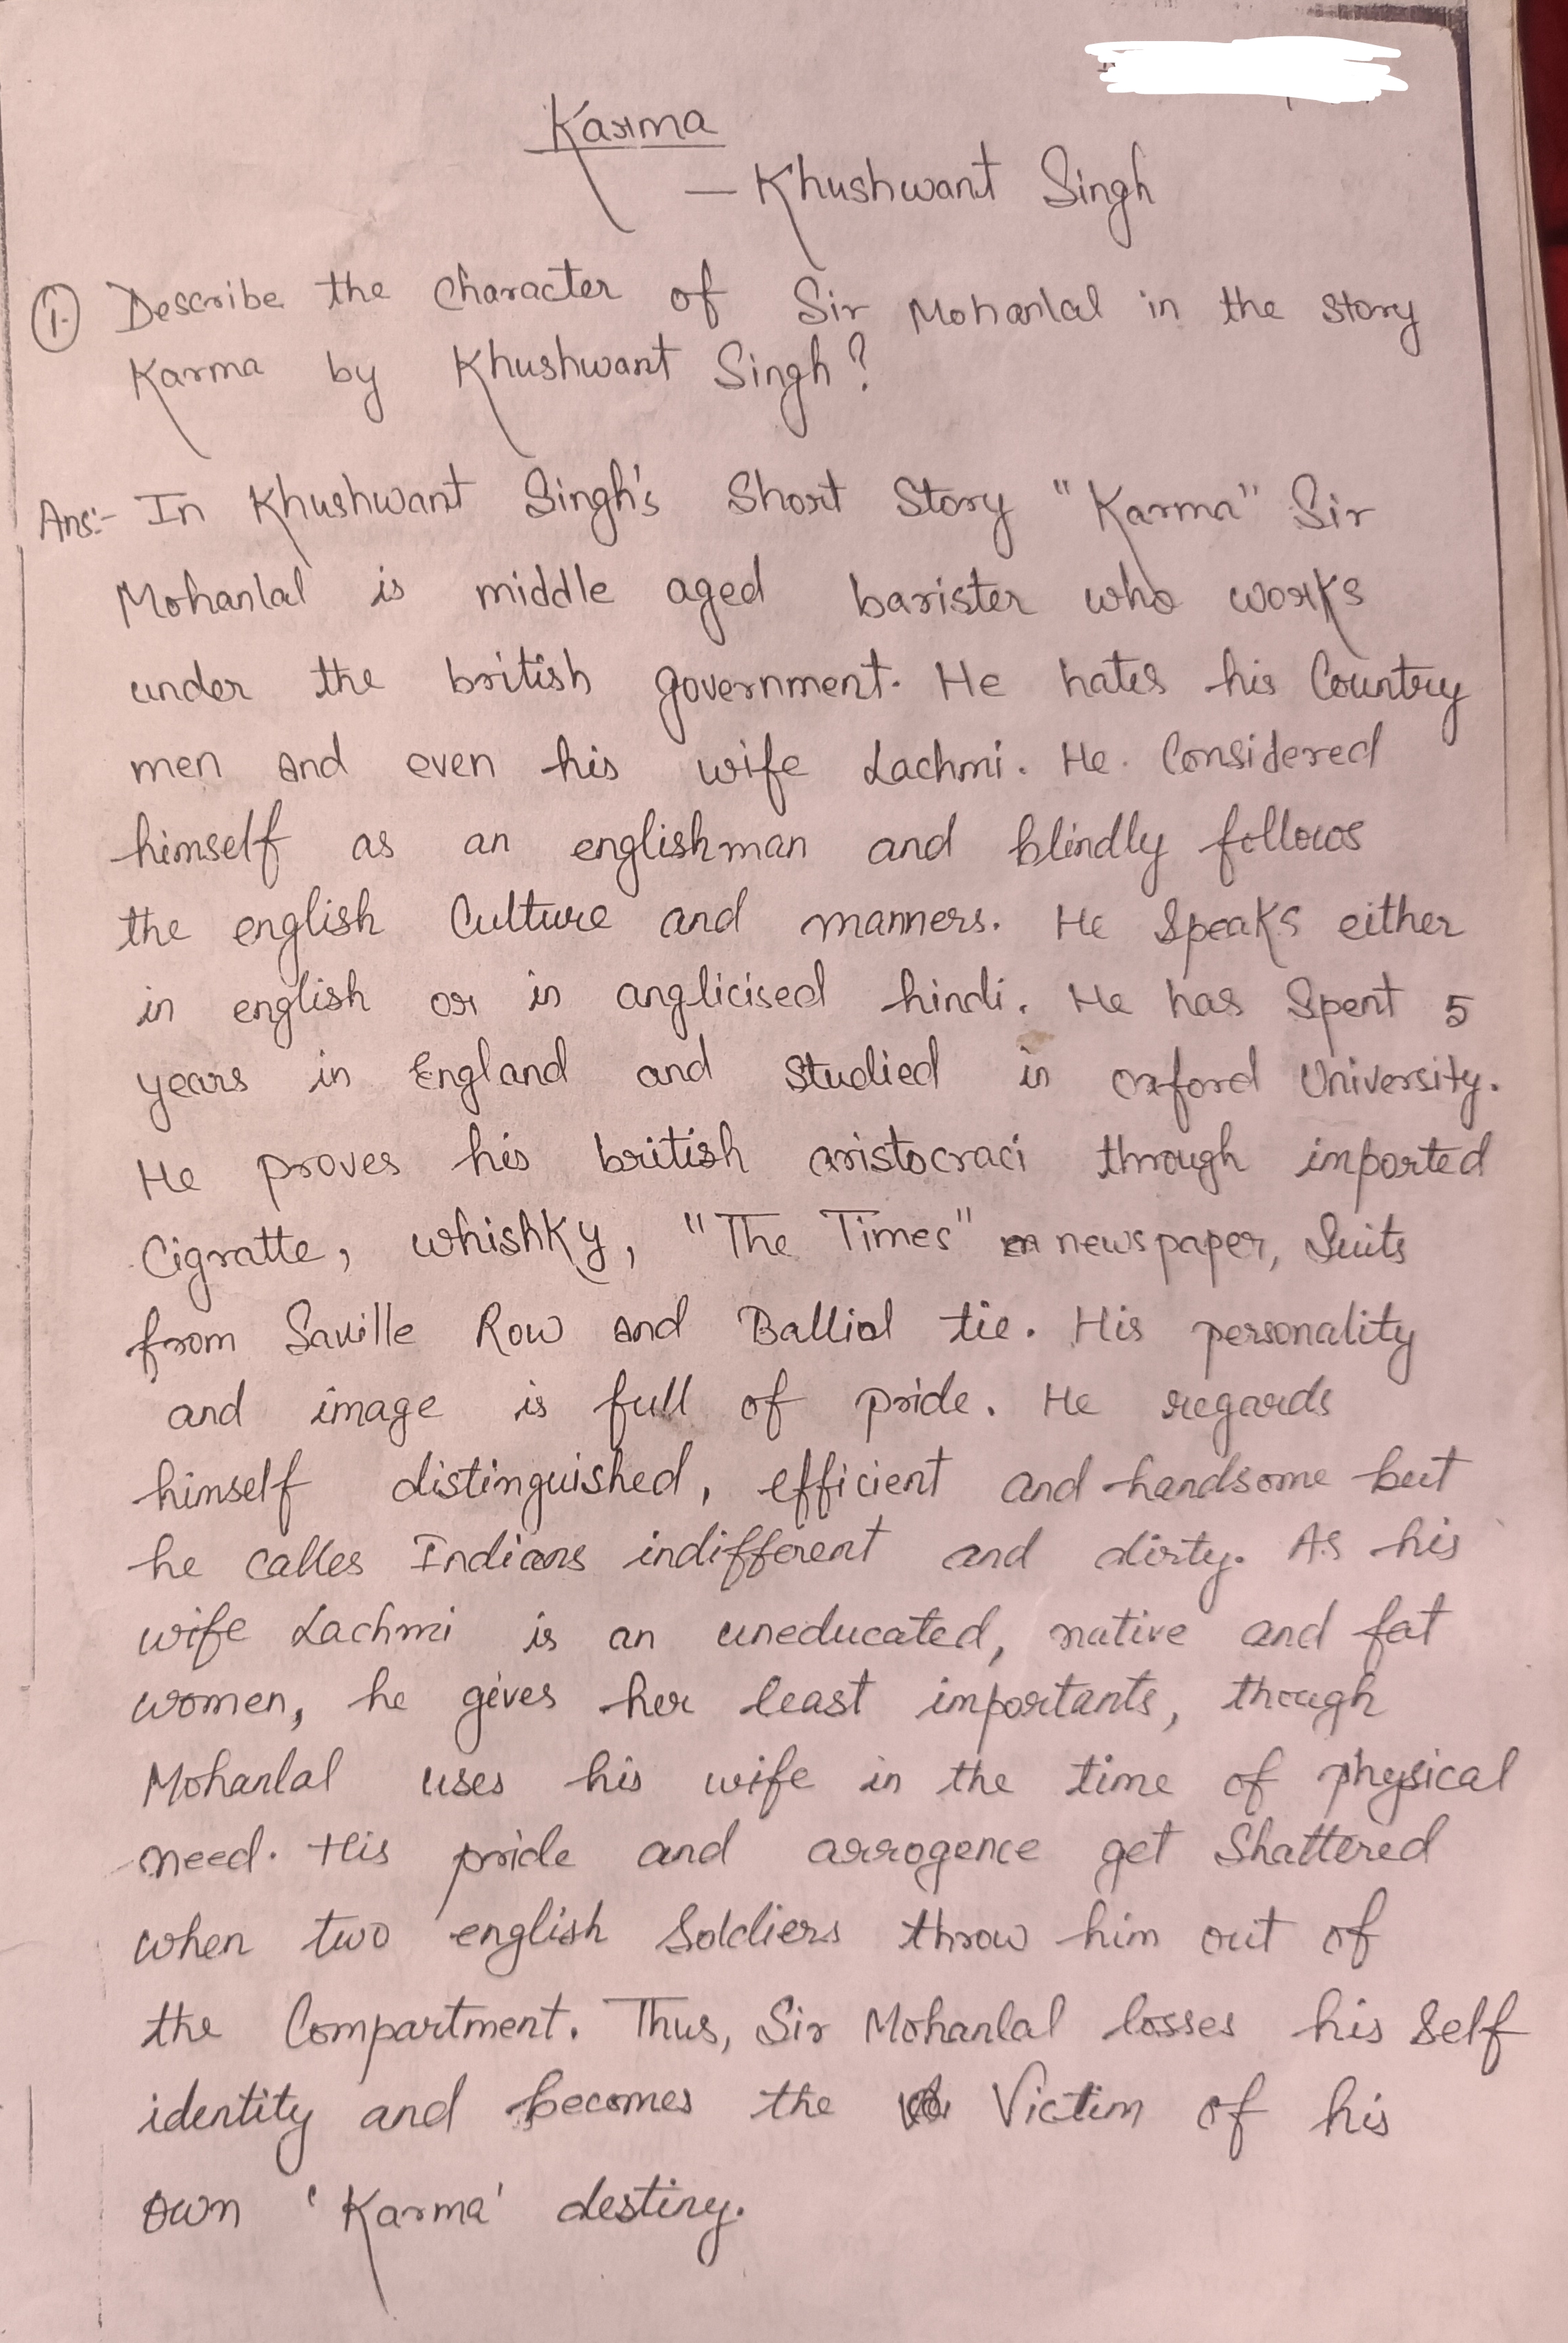 Karma
— Khushwant Singh
1. Describe the Character of Sir Mohanlal in the story
Karma by Khushwant Singh?
Ans:- In Khushwant Singh's Short Story "Karma" Sir
Mohanlal is middle aged barister who works
under the british government. He hates his Country
men and even his wife Lachmi. He. Considered
himself as an englishman and blindly follows
the english Culture and manners. He Speaks either
in english or in anglicised hindi. He has Spent 5
years in England and studied in oxford University.
He proves his british aristocraci through imported
Cigratte, whishky, "The Times" newspaper, Suits
from Saville Row and Balliol tie. His personality
and image is full of pride. He regards
himself distinguished, efficient and handsome but
he calles Indians indifferent and dirty. As his
wife Lachmi is an uneducated, native and fat
women, he gives her least importants, though
Mohanlal uses his wife in the time of physical
need. His pride and arrogence get Shattered
when two english Soldiers throw him out of
the Compartment. Thus, Sir Mohanlal losses his Self
identity and becomes the Victim of his
own 'Karma' destiny.